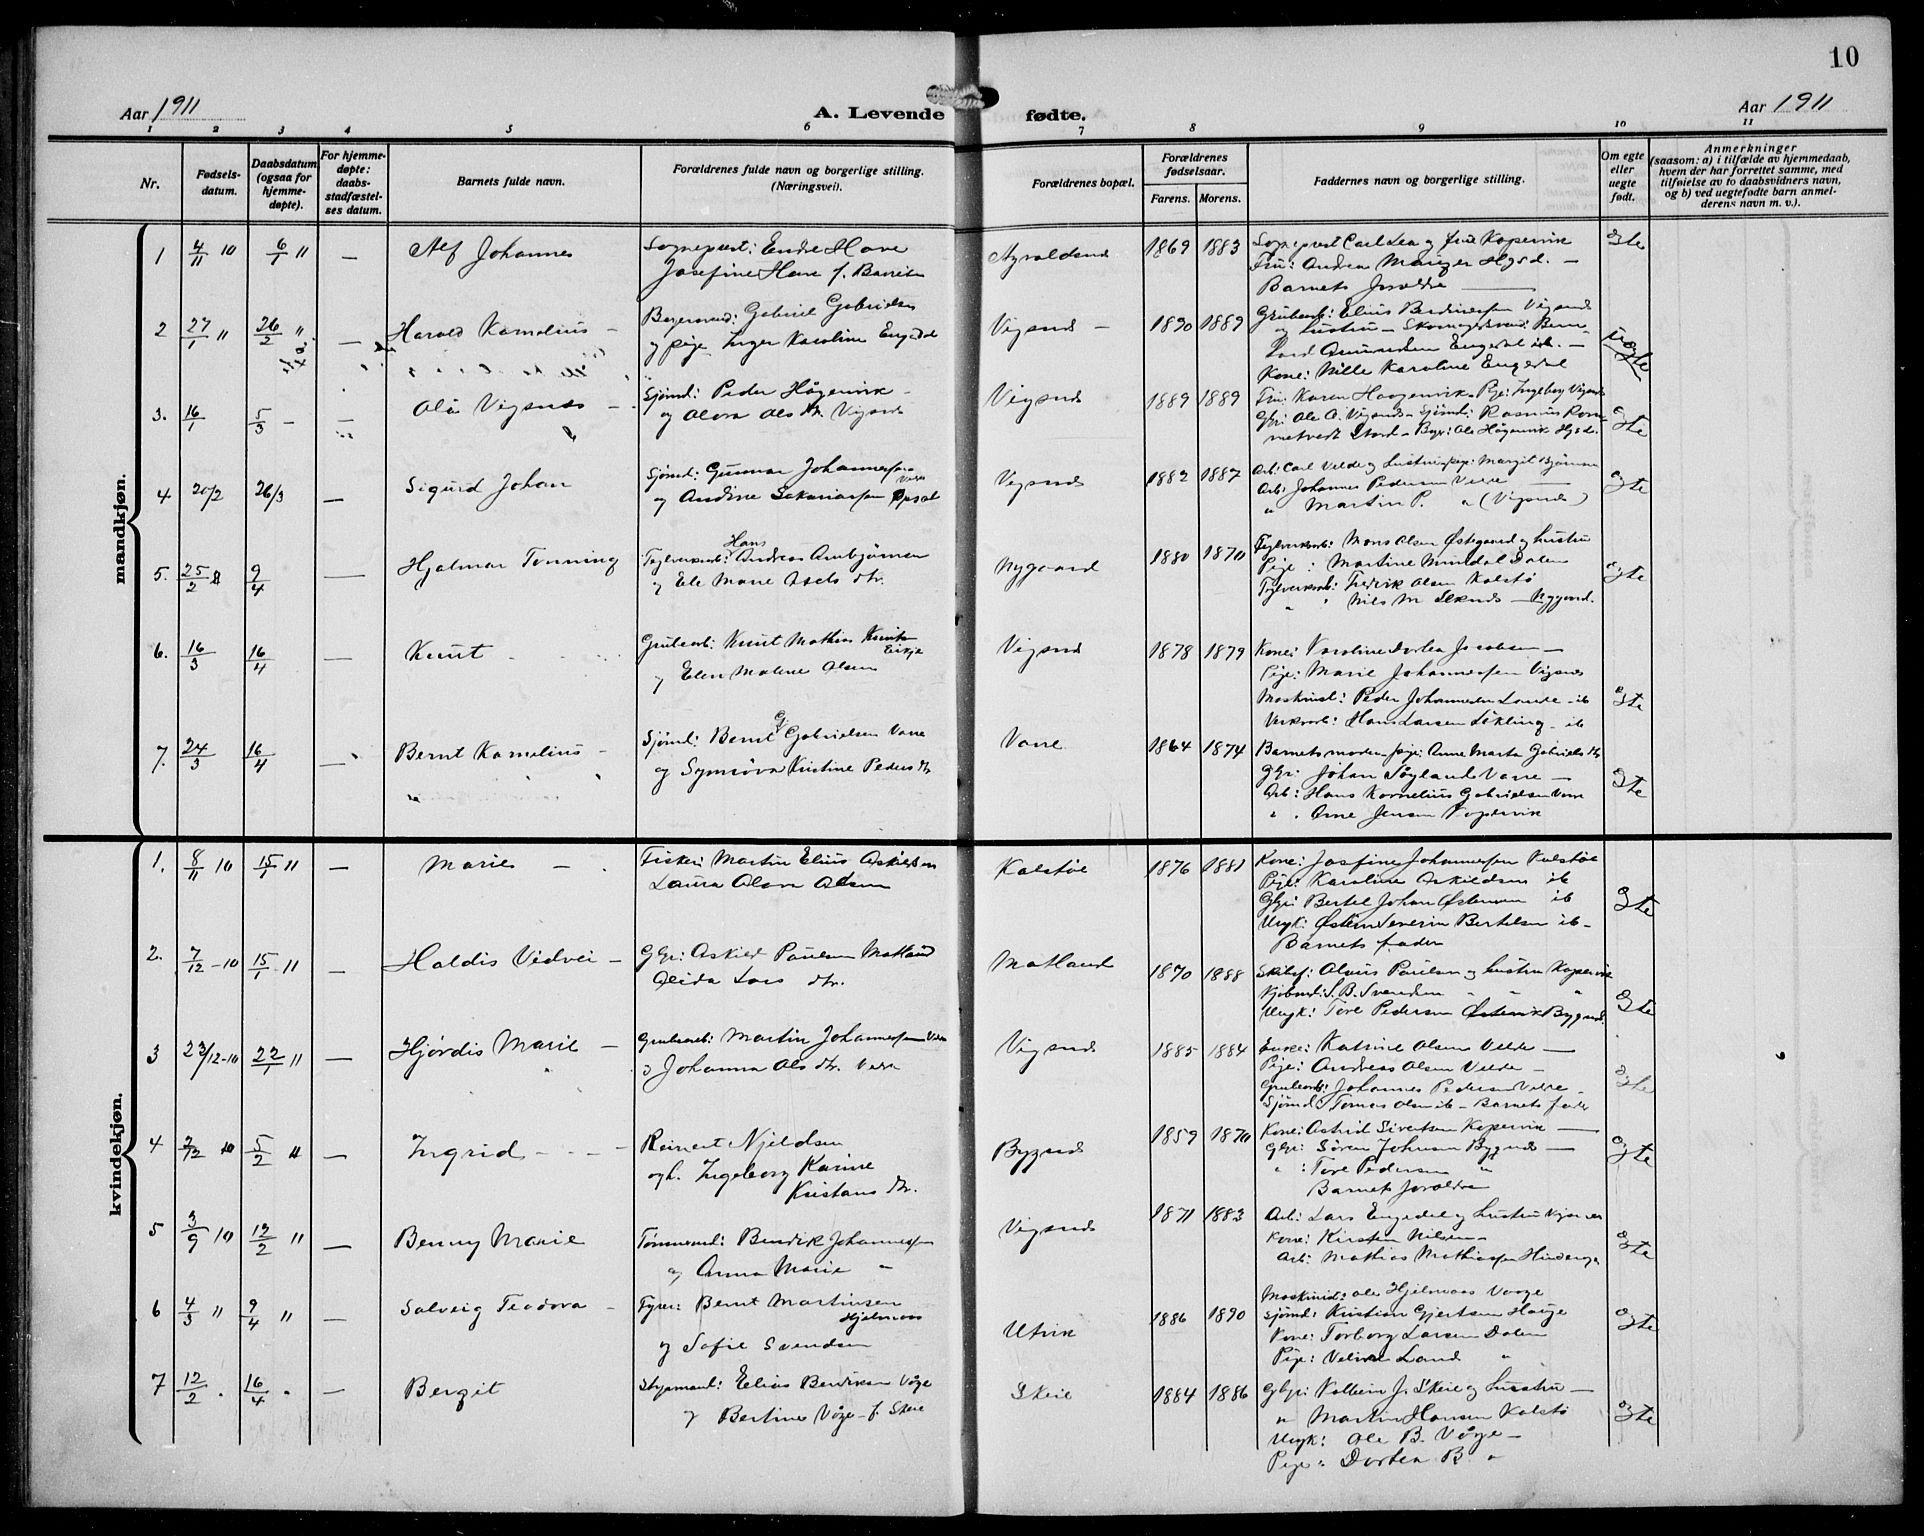 10
Aar 1911
A. Levende fødte.
Aar 1911
1 2 3 4 5 6 7 8 9 10 11
Nr.
Fødsels-
datum.
Daabsdatum
(ogsaa for
hjemme-
døpte).
For hjemme-
døpte:
daabs-
stadfæstel-
ses datum.
Barnets fulde navn.
Forældrenes fulde navn og borgerlige stilling.
(Næringsvei).
Forældrenes bopæl.
Forældrenes
fødselsaar.
Farens. Morens.
Faddernes navn og borgerlige stilling.
Om egte
eller
uegte
født.
Anmerkninger
(saasom: a) i tilfælde av hjemmedaab,
hvem der har forrettet samme, med
tilføielse av to daabsvidners navn,
og b) ved uegtefødte barn anmel-
derens navn m. v.).
mandkjøn.
1 4/11 10 6/1 11 — Alf Johannes
Sogneprest: Endre Hove
Josefine Hove f.
1869 1883
Sogneprest Carl Lea og Fru Kopervik
Fru: Andrea
Barnets forældre
Egte
2 27/1 " 26/2 " — Harald Kornelius —
Gabriel Gabrielsen
og pige Inger Karoline Engedal
Vigsnes —
1890 1889
Kone: Nille Karoline Engedal
Uegte
3. 16/1 5/3 — — Ole Vigsnes —
Sjømd: Peder Hågenvik —
og Alvra Ols dtr. Vigsnes
Vigsnes
1889 1889
Fru: Karen Haagenvik — Pige: Ingeborg Vigsnes
Gbr: Ole A. Vigsnes — Sjømd: Rasmus Rom-
metvedt Stord — Bgr: Ole Hågenvik Hgsd.
Egte
4 20/2 26/3 — Sigurd Johan
Sjømd: Gunnar Johannessen
og Andine Sakariassen
Vigsnes
1882 1887
Arb: Carl Velde og hustru, pige: Margit Bjørnsen
Arb: Johannes Pedersen Velde
" Martin P. " (Vigsnes)
Egte
5. 25/2 9/4 — Hjalmar Tonning
Teglverksarb: Hans Andreas Arnbjørnsen
og Ele Marie Asels dtr.
Nygaard
1880 1870
Teglverksarb: Mons Olsen Østegaard og hustru
Pige: Martine Mundal Dalen
Teglverksarb: Fredrik Olsen Kalstø
" " Nils M — Nygaard.
Egte
6. 16/3 16/4 — Knut
Grubearb: Knut Mathias
og Elen Malene Olsen
Vigsnes
1878 1879
Kone: Karoline Dortea Jacobsen —
Pige: Marie Johannessen Vigsnes
Maskinist: Peder Johannesen — ib
Verksarb: Hans Larsen — ib
Egte
7. 24/3 16/4 — Bernt Kornelius —
Sjømd: Bernt G. Gabrielsen Vorre
og Synnøva Kristine Peders dtr
Vorre
1864 1874
Barnets moder — pige: Anne Marta Gabriels dtr
Gbr: Johan Søyland Vorre —
Arb: Hans Kornelius Gabrielsen Vorre
" . Arne Jensen Kopervik
Egte
kvindekjøn.
1. 8/11 10 15/1 11 — Marie —
Fisker: Martin Elius Askildsen
Laura Alvra Olsen
Kalstøe
1876 1881
Kone: Josefine Johannessen Kalstøe
Pige: Karoline Askildsen ib
Gbr: Bertel Johan Østensen ib
Ungk: Østen Severin Bertelsen ib —
Barnets fader
Egte
2. 7/12 — 10 15/1 11 — Haldis Vedvei —
Gbr: Askild Paulsen Matland
Alida Lars dtr.
Matland
1870 1888
Skibsf: Olaus Paulsen og hustru Kopervik
Kjøbmd: S. B. Svendsen " " "
Ungk: Tore Pedersen Østervik Bygnes.
Egte
3 23/12 — 10 22/1 11 — Hjørdis Marie —
Grubearb: Martin Johannessen Velde
og Johanna Ols dtr. Velde
Vigsnes
1885 1884
Enke: Katrine Olsen Velde —
Pige: Andrea Olsen Velde —
Grubearb: Johannes Pedersen Velde —
Sjømd: Tomas Olsen ib — Barnets fader
Egte
4 10 5/2 11 — Ingrid — — —
Reinert Njeldsen
og h. Ingeborg Karine
Kristans dtr.
Bygnes
1859 1870
Kone: Astrid Sivertsen Kopervik —
Gbr: Søren Johnsen Bygnes —
" : Tore Pedersen "
Barnets forældre
Egte
5 3/9 10 12/2 11 — Benny Marie
Tømmermd: Bendik Johannessen
og Anna Marie "
Vigsnes
1871 1883
Arb: Lars Engedal og hustru Vigsnes
Kone: Kirsten Nilsen —
Arb: Mathias Mathiassen
Egte
6 4/3 " 9/4 " — Solveig Teodora —
Fyrb: Bernt Martinsen
Hjelmaas
og Sofie Svendsen
Utvik
1886 1890
Maskinist: Ole Hjelmaas Vorge
Sjømd: Kristian Gjertsen Hauge
Kone: Torborg Larsen Dalen
Pige: Land "
Egte
7 12/2 . 16/4 . — Bergit
Styrmand: Elias Bendiksen Våge
og Bertine Våge — f. Skeie
Skeie
1884 1886
Gbr: Kolbein J. Skeie og hustru —
" Martin Hansen Kalstø
Ungk: Ole B. Våge —
Pige: Dortea B. "
Egte